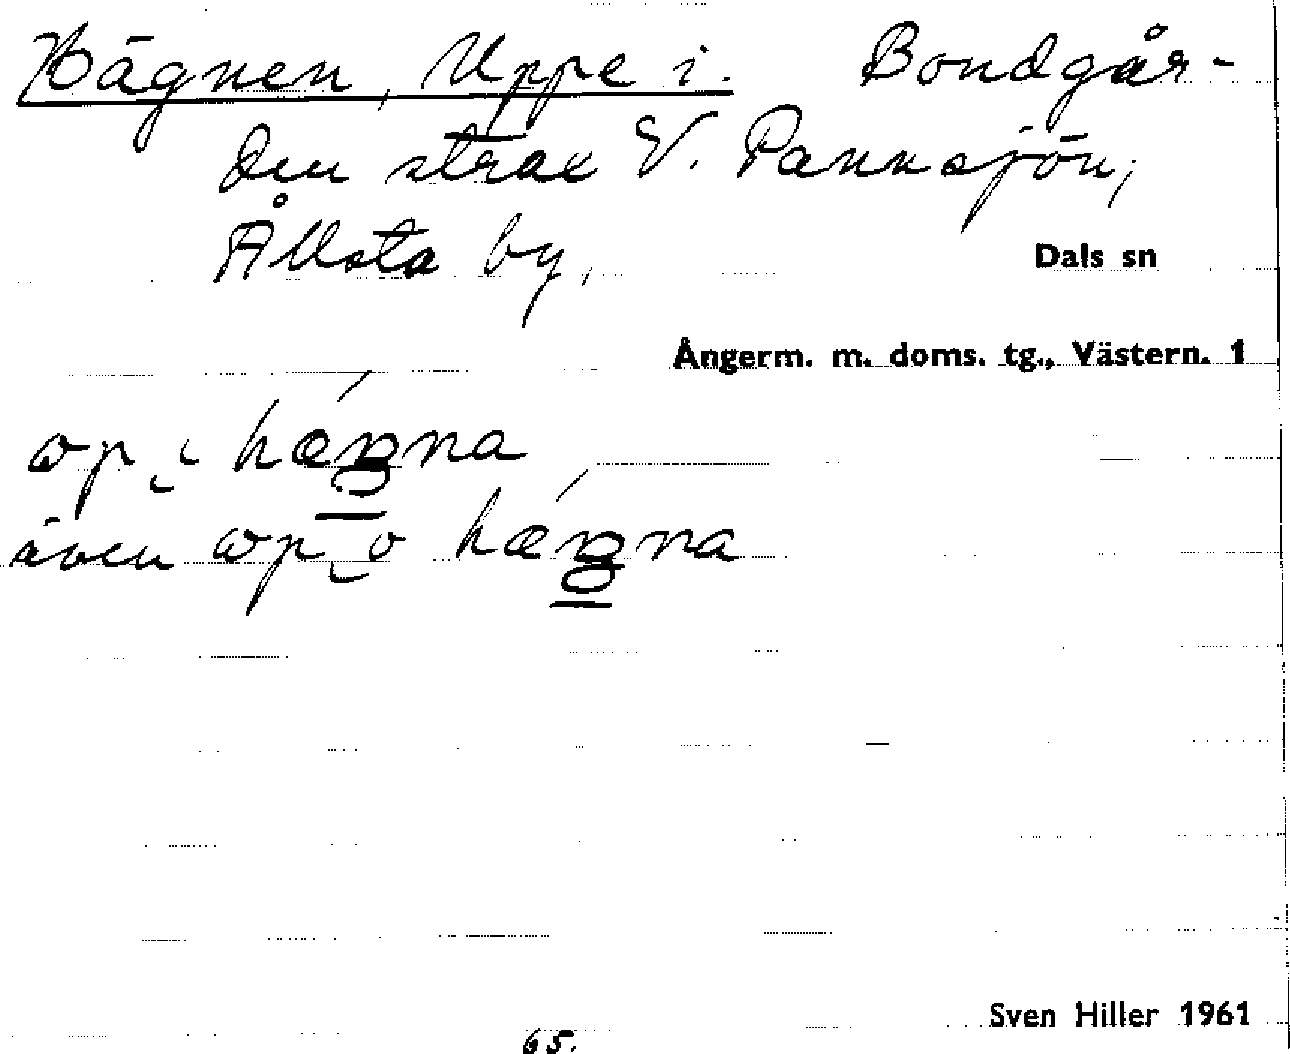 Hägnen, Uppe i. Bondgår-
den strax V. Pannsjön,
Ållsta by,
Dals sn
Ångerm. m. doms. tg., Västern. 1
även
Sven Hiller 1961
65.